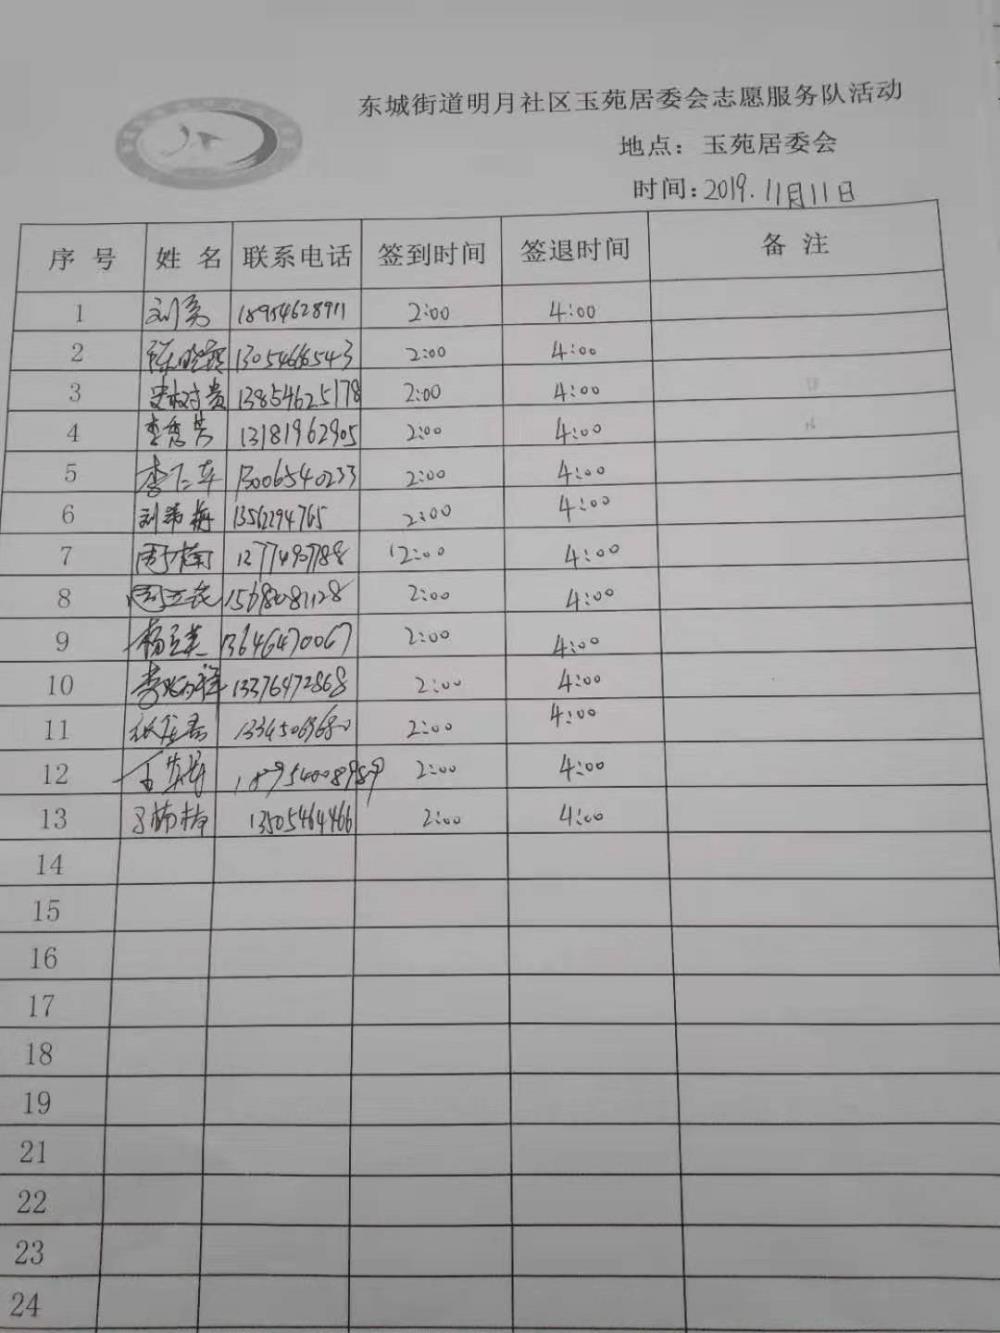 东城街道明月社区玉苑居委会志愿服务队活动
地点：玉苑居委会
时间：2019.11月11日
序号 姓名 联系电话 签到时间 签退时间 备注
1 刘英 18954628911 2:00 4:00
2 13054665543 2:00 4:00
3 史树贵 13854625178 2:00 4:00
4 李秀英 13181962905 2:00 4:00
5 李仁车 13006540233 2:00 4:00
6 13562294765 2:00 4:00
7 12:00 4:00
8 1568081128 2:00 4:00
9 杨立英 13646470067 2:00 4:00
10 13376472868 2:00 4:00
11 2:00 4:00
12 18954008989 2:00 4:00
13 13505464466 2:00 4:00
14
15
16
17
18
19
21
22
23
24